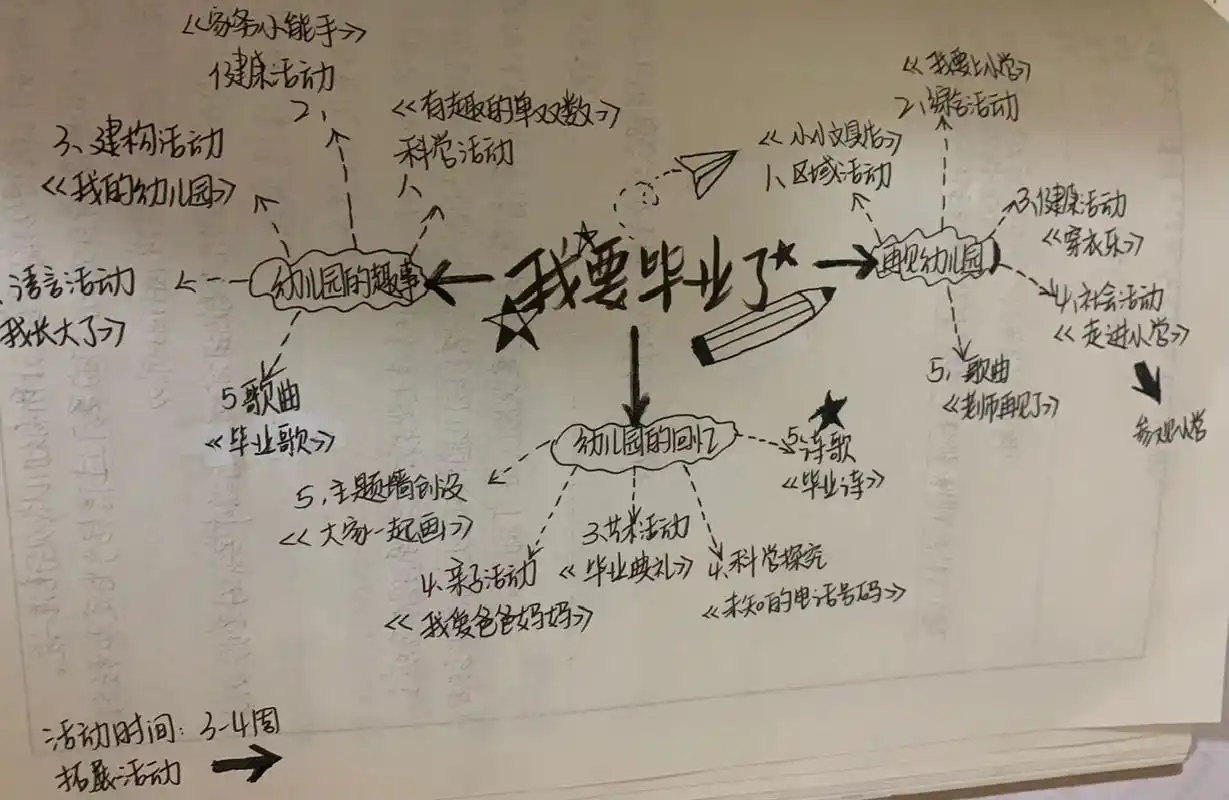 《家务小能手》
健康活动
2、
《有趣的单双数》
科学活动
1、
3、建构活动
《我的幼儿园》
语言活动
我长大了》
幼儿园的趣事
5、歌曲
《毕业歌》
我要毕业了
《小小文具店》
1、区域活动
《我要上小学》
2、综合活动
3、健康活动
《穿衣乐》
再见幼儿园
4、社会活动
《走进小学》
参观小学
5、歌曲
《老师再见了》
幼儿园的回忆
5、诗歌
《毕业诗》
5、主题墙创设
《大家一起画》
4、亲子活动
《我爱爸爸妈妈》
3、艺术活动
《毕业典礼》
4、科学探究
《未知的电话号码》
活动时间：3-4周
拓展活动